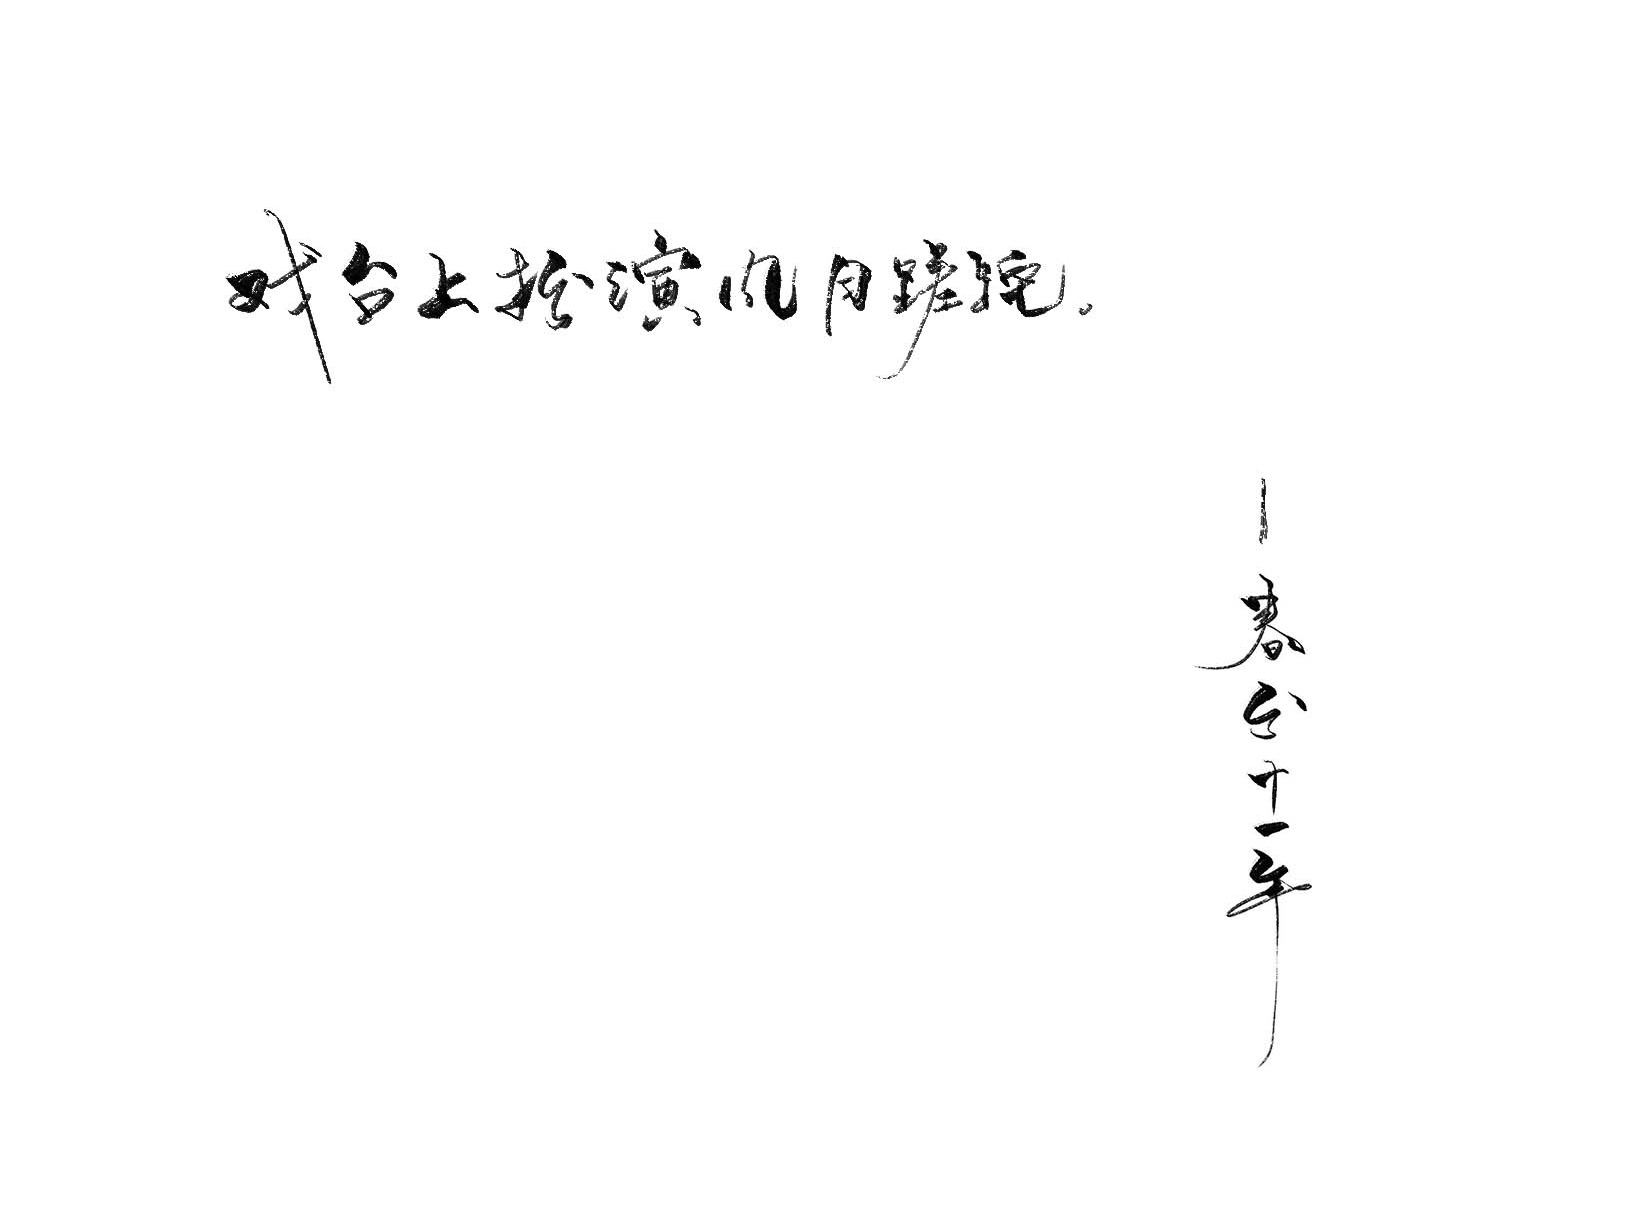 戏台上扮演风月蹉跎。
—春台十一年